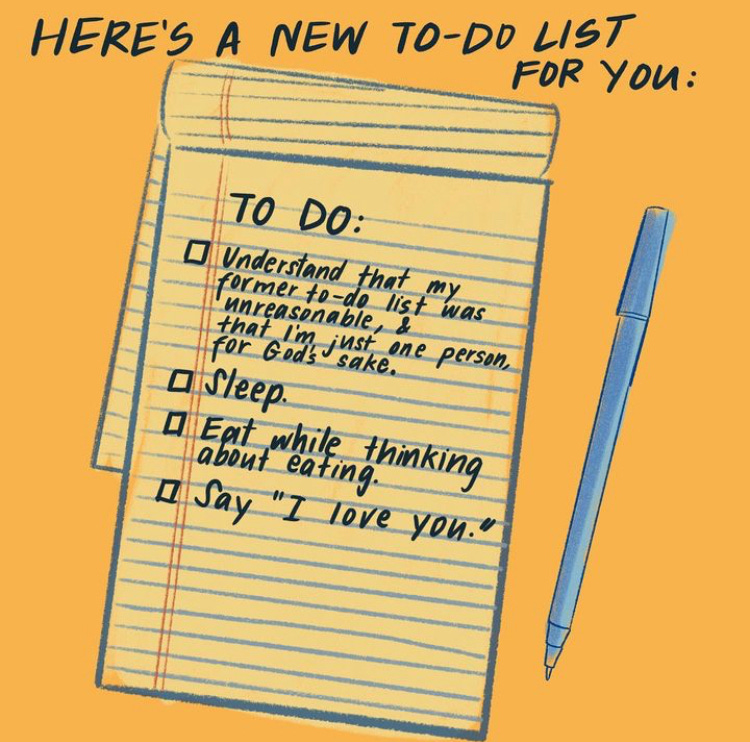 HERE'S A NEW TO-DO LIST
FOR YOU:
TO DO:
Understand that my
former to-do list was
unreasonable, &
that I'm just one person,
for God's sake.
Sleep.
Eat while thinking
about eating.
Say "I love you."